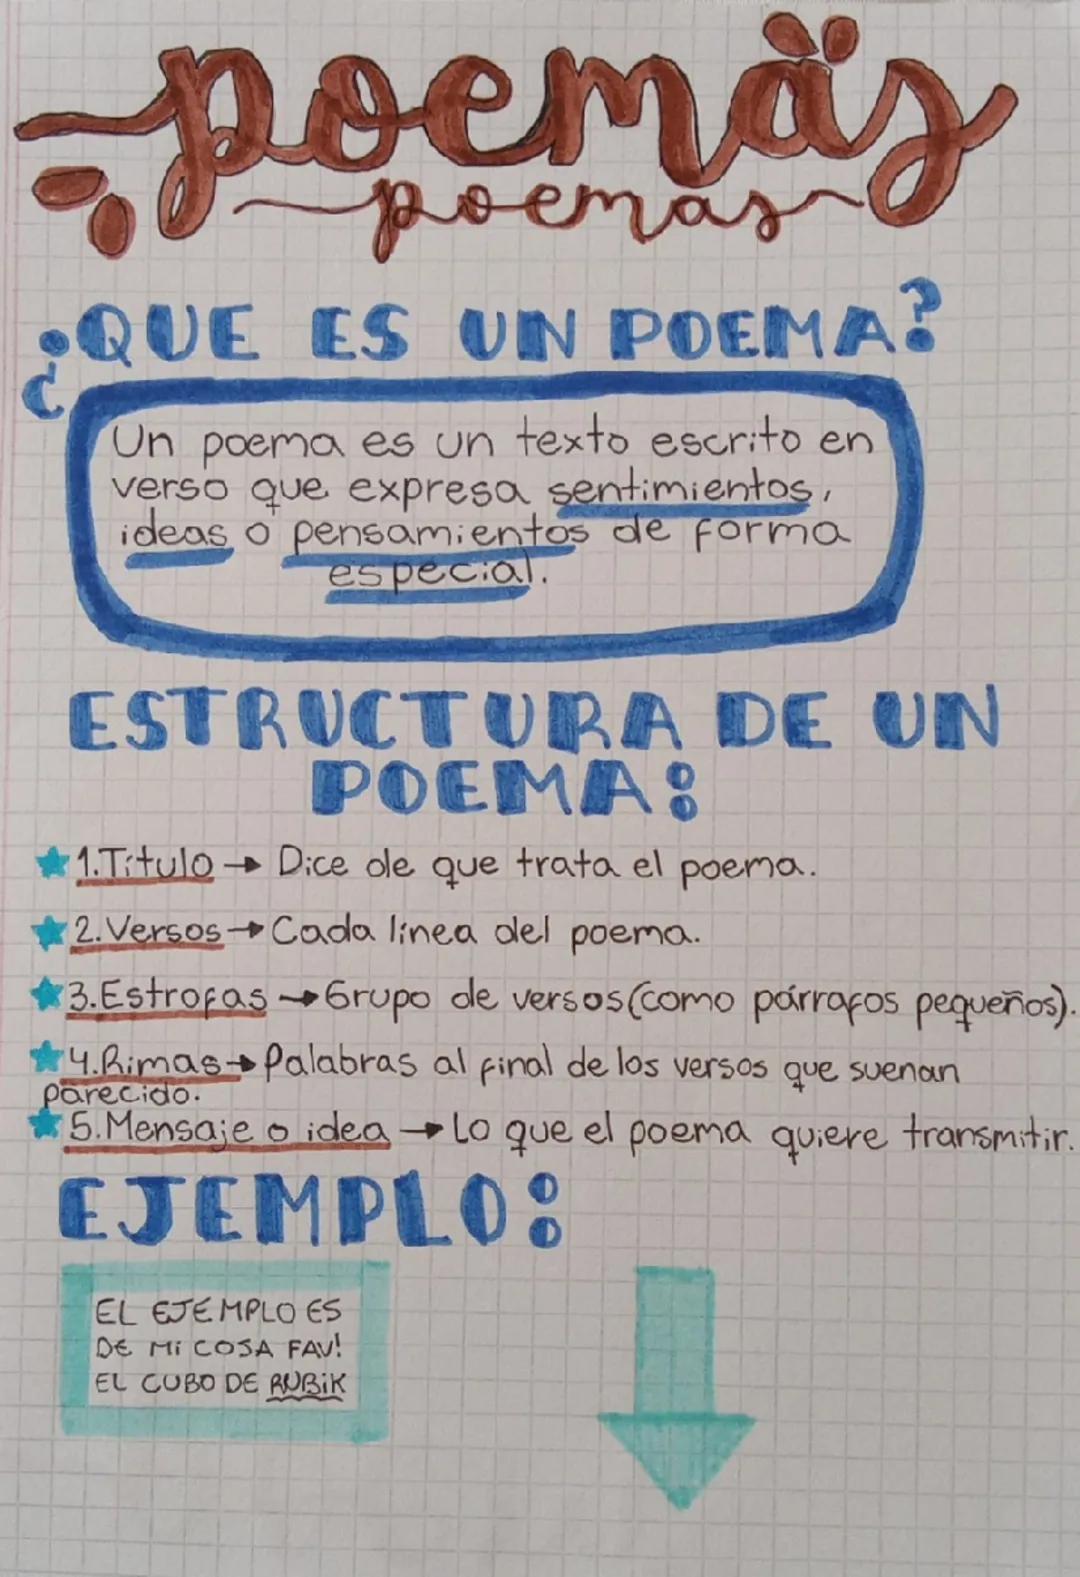 poemas
poemas
¿QUE ES UN POEMA?
Un poema es un texto escrito en
verso que expresa sentimientos,
ideas o pensamientos de forma
especial.
ESTRUCTURA DE UN
POEMA:
1.Título → Dice de que trata el poema.
2.Versos → Cada línea del poema.
3.Estrofas → Grupo de versos (como párrafos pequeños).
4.Rimas → Palabras al final de los versos que suenan
parecido.
5.Mensaje o idea → Lo que el poema quiere transmitir.
EJEMPLO:
EL EJEMPLO ES
DE MI COSA FAV!
EL CUBO DE RUBIK